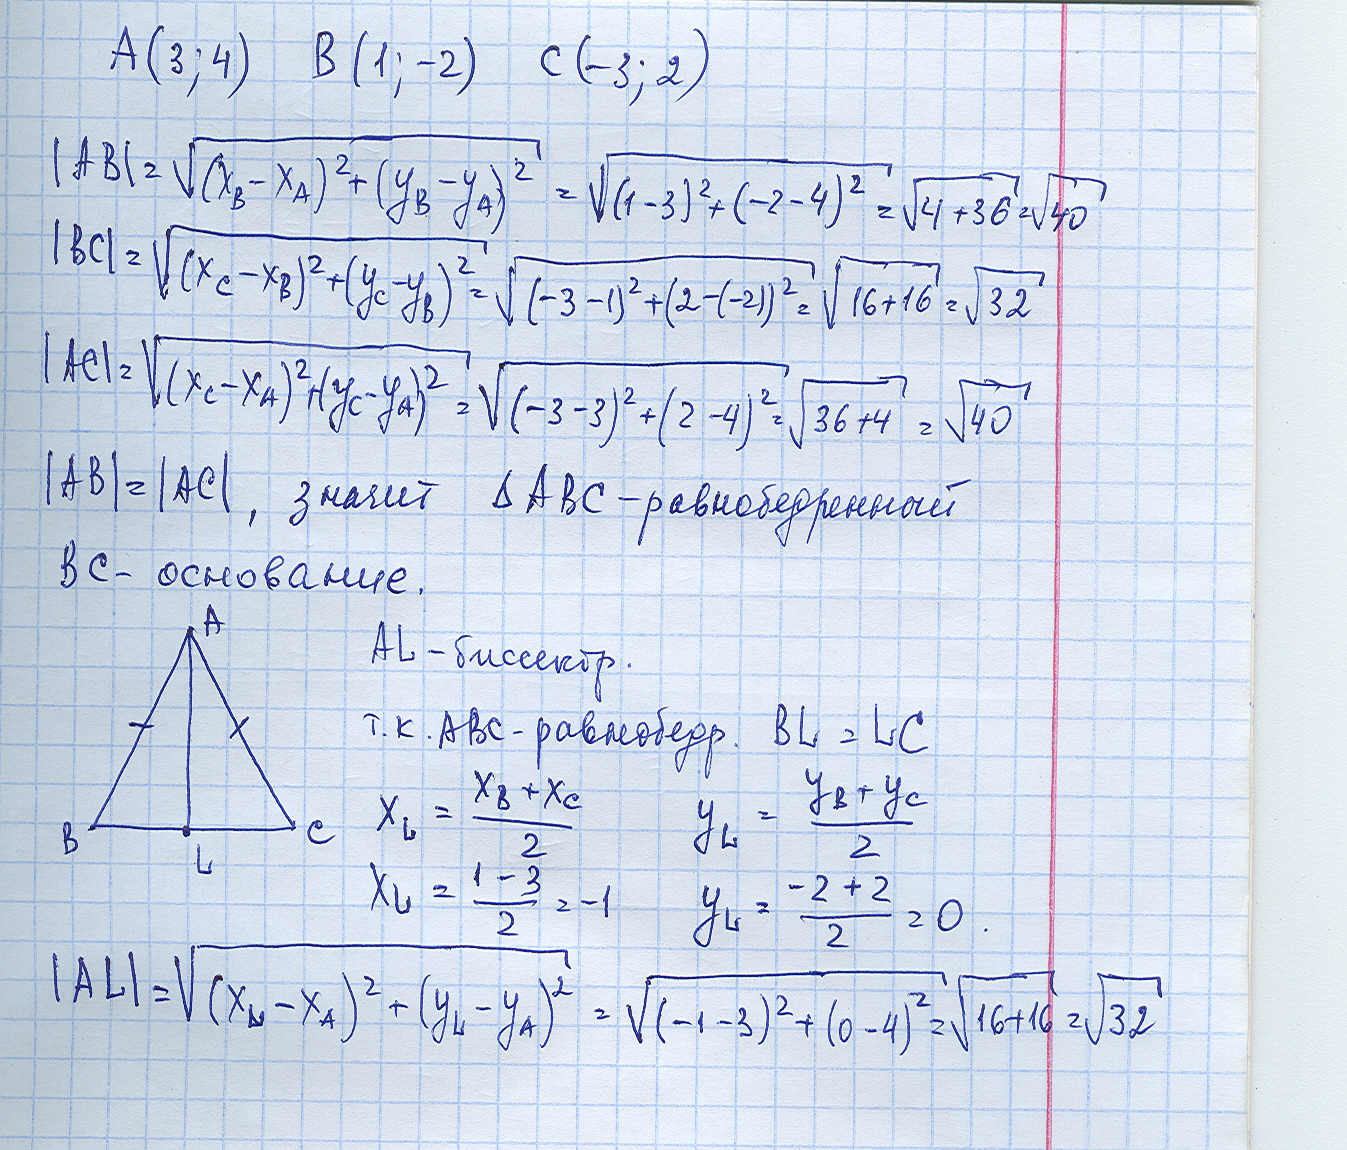 A(3;4) B(1;-2) C(-3;2)
|AB|=√(x_B-x_A)²+(y_B-y_A)² = √(1-3)²+(-2-4)² = √4+36 = √40
|BC|=√(x_C-x_B)²+(y_C-y_B)² = √(-3-1)²+(2-(-2))² = √16+16 = √32
|AC|=√(x_C-x_A)²+(y_C-y_A)² = √(-3-3)²+(2-4)² = √36+4 = √40
|AB|=|AC|, значит ΔABC-равнобедренный
BC- основание.
A
B
C
L
AL-биссектр.
т.к. ABC-равнобедр. BL = LC
x_L = (x_B+x_C)/2 y_L = (y_B+y_C)/2
x_L = (1-3)/2 = -1 y_L = (-2+2)/2 = 0.
|AL|=√(x_L-x_A)²+(y_L-y_A)² = √(-1-3)²+(0-4)² = √16+16 = √32